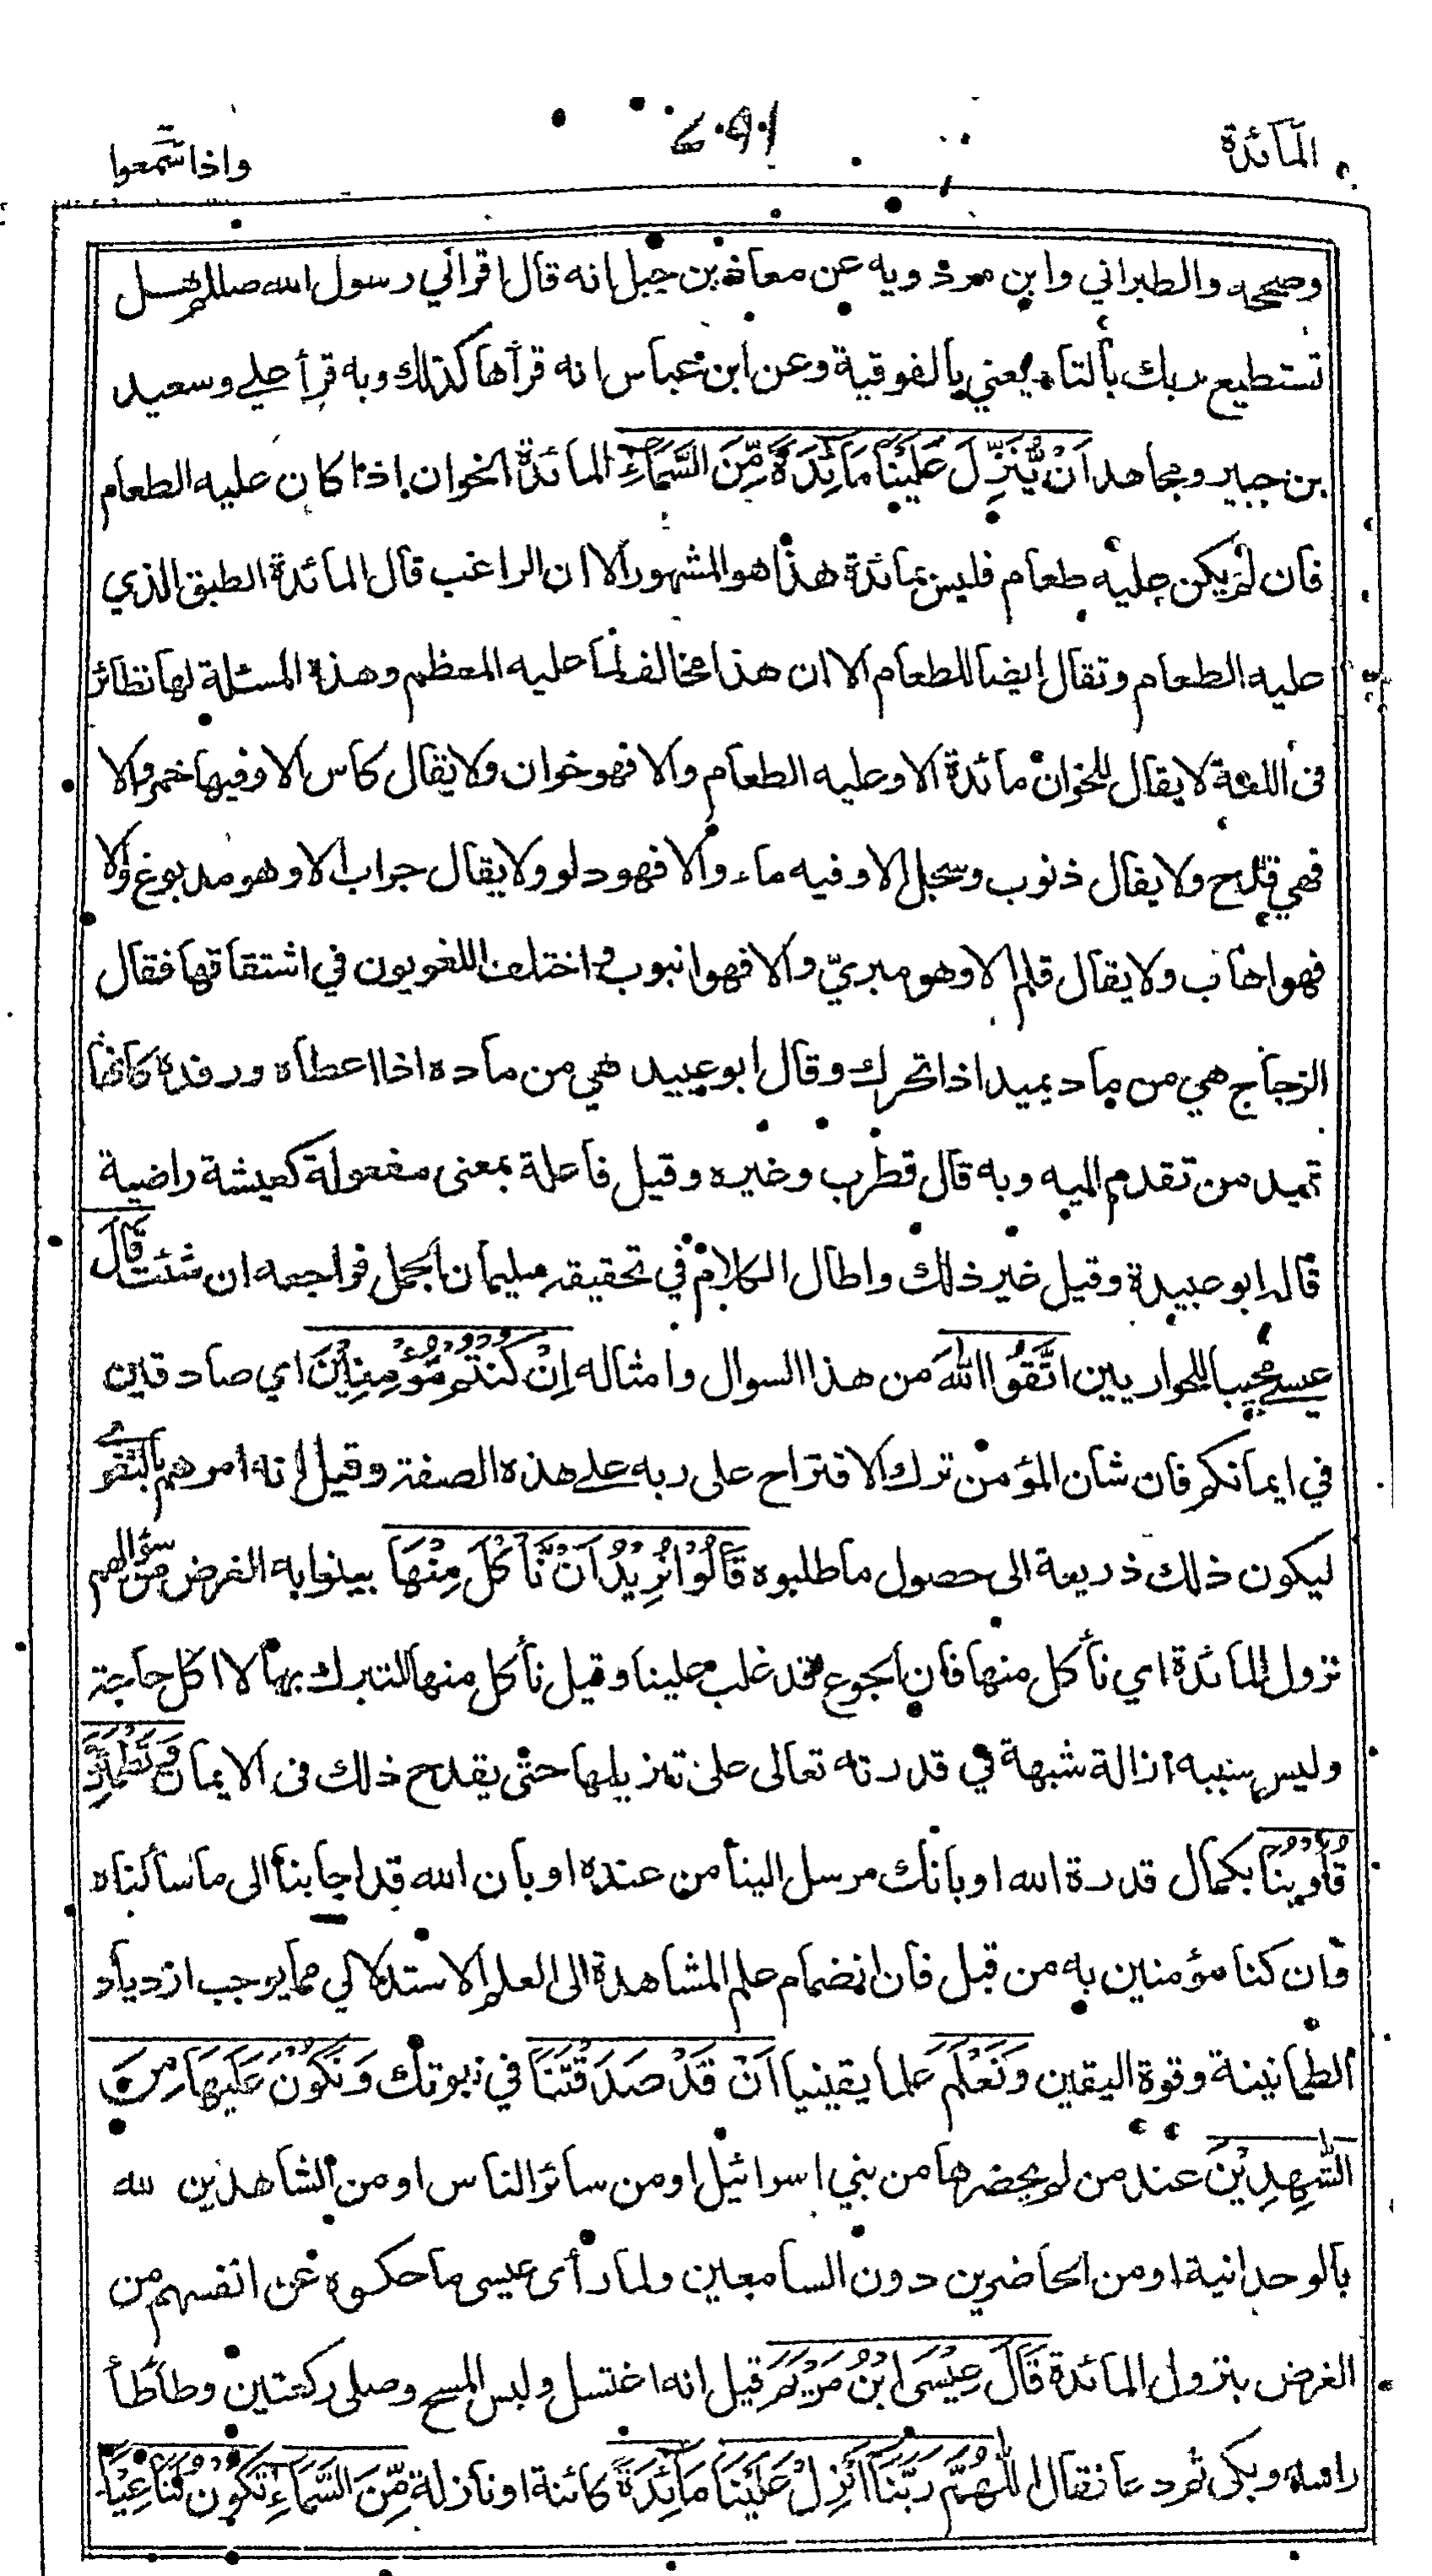 المآئدة
واذا سمعوا
وصححه والطبراني وابن مردويه عن معاذ بن جبل انه قال اقرأني رسول الله صللم هل
تستطيع ربك بالتاء يعني بالفوقية وعن ابن عباس انه قرأها كذلك وبه قرأ علي وسعيد
بن جبير ومجاهد اَنْ يُّنَزِّلَ عَلَيْنَا مَائِدَةً مِّنَ السَّمَاءِ المائدة الخوان اذا كان عليه الطعام
فان لم يكن عليه طعام فليس بمائدة هذا هو المشهور الا ان الراغب قال المائدة الطبق الذي
عليه الطعام وتقال ايضا للطعام الا ان هذا مخالف لما عليه المعظم وهذة المسئلة لها نظائر
فى اللغة لا يقال للخوان مائدة الا وعليه الطعام والا فهو خوان ولا يقال كاس الا وفيها خمر والا
فهي قدح ولا يقال ذنوب وسجل الا وفيه ماء والا فهو دلو ولا يقال جراب الا وهو مدبوغ والا
فهو اهاب ولا يقال قلم الا وهو مبريّ والا فهو انبوب واختلف اللغويون في اشتقاقها فقال
الزجاج هي من ماد يميد اذا تحرك وقال ابو عبيد هي من ماده اذا اعطاه ورفده كانها
تميد من تقدم اليه وبه قال قطرب وغيره وقيل فاعلة بمعنى مفعولة كعيشة راضية
قاله ابو عبيدة وقيل غير ذلك واطال الكلام في تحقيقه سليمان الجمل فراجعه ان شئت قَالَ
عيسى مجيبا للحواريين اتَّقُوا اللهَ من هذا السوال وامثاله اِنْ كُنْتُمْ مُّؤْمِنِيْنَ اي صادقين
في ايمانكم فان شان المؤمن ترك الاقتراح على ربه على هذه الصفة وقيل انه امرهم بالتقوى
ليكون ذلك ذريعة الى حصول ما طلبوه قَالُوْا نُرِيْدُ اَنْ نَّأْكُلَ مِنْهَا بينوا به الغرض من سؤالهم
نزول المائدة اي نأكل منها فان الجوع قد غلب علينا وقيل نأكل منها للتبرك بها لا اكل حاجة
وليس سببه ازالة شبهة في قدرته تعالى على تنزيلها حتى يقدح ذلك فى الايمان وَتَطْمَئِنَّ
قُلُوْبُنَا بكمال قدرة الله او بانك مرسل الينا من عنده او بان الله قد اجابنا الى ما سألناه
وان كنا مؤمنين به من قبل فان انضمام علم المشاهدة الى العلم الاستدلالي مما يوجب ازدياد
الطمانينة وقوة اليقين وَنَعْلَمَ علما يقينيا اَنْ قَدْ صَدَقْتَنَا في نبوتك وَنَكُوْنَ عَلَيْهَا مِنَ
الشّٰهِدِيْنَ عند من لم يحضرها من بني اسرائيل او من سائر الناس او من الشاهدين لله
بالوحدانية او من الحاضرين دون السامعين ولما رأى عيسى ما حكوه عن انفسهم من
الغرض بنزول المائدة قَالَ عِيْسَى ابْنُ مَرْيَمَ قيل انه اغتسل ولبس المسح وصلى ركعتين وطأطأ
راسه وبكى ثم دعا فقال اللّٰهُمَّ رَبَّنَا اَنْزِلْ عَلَيْنَا مَآئِدَةً كائنة او نازلة مِّنَ السَّمَاءِ تَكُوْنُ لَنَا عِيْدًا